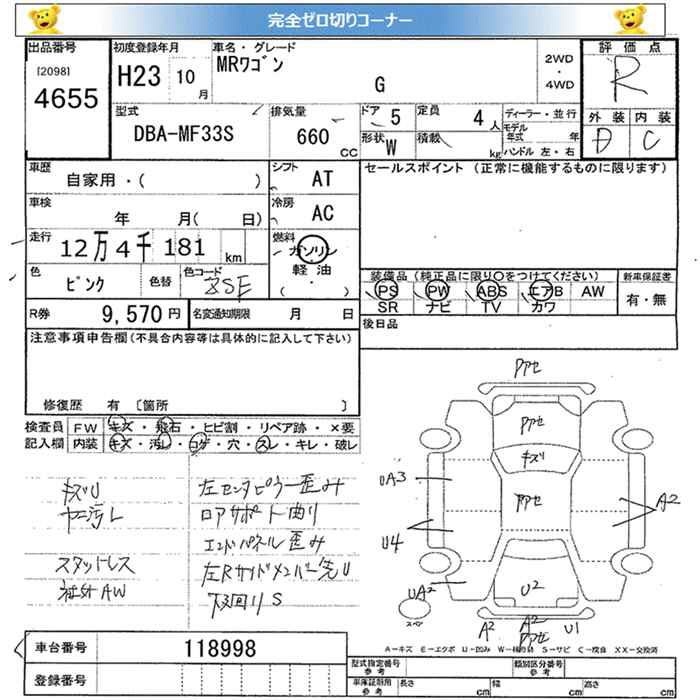 完全ゼロ切りコーナー
出品番号 初度登録年月 車名・グレード 評価点
[2098] 4655 H23 10月 MRワゴン G 2WD・4WD R
型式 排気量 ドア 5 定員 4人 ディーラー・並行 外装 内装
DBA-MF33S 660 CC 形状 W 積載 kg モデル年式 年 D C
ハンドル 左・右
車歴 シフト セールスポイント (正常に機能するものに限ります)
自家用・( ) AT
車検 冷房
年 月( 日) AC
走行 燃料
12万4千181 km ガソリン
軽油
( ・ )
色 ピンク 色替 色コード ZSE
装備品 (純正品に限り○をつけてください) 新車保証書
PS PW ABS エアB AW 有・無
SR ナビ TV カワ
R券 9,570円 名変通知期限 月 日 後日品
注意事項申告欄(不具合内容等は具体的に記入して下さい)
修復歴 有 〔箇所 〕
検査員 FW キズ・飛石・ヒビ割・リペア跡・×要
記入欄 内装 キズ・汚レ・コゲ・穴・スレ・キレ・破レ
キズU 左センタピラー歪み
ヤニ汚レ コアサポート曲り
エンドパネル歪み
スタットレス 左Rサイドメンバー先U
社外AW 下回りS
Pアセ
Pアセ
キズ
UA3 Pアセ A2
U4
UA2 U2
スペア A2 A2 Pアセ U1
A－キズ E－エクボ U－凹み W－補修跡 S－サビ C－腐食 XX－交換済
車台番号 118998
登録番号
型式指定番号 参考 類別区分番号 参考
車庫証明用 参考 長さ cm 幅 cm 高さ cm